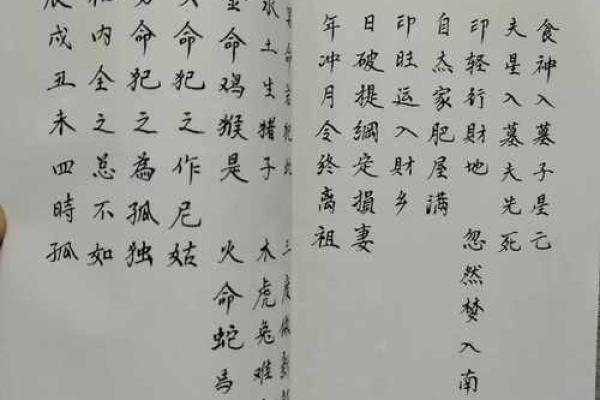 食神入墓子星亡
夫星入墓夫先死
印轻行財地 忽然梦入南
自杰家肥屋满
印旺运入財乡
日破提綱定損妻
年冲月令终离祖
水土生猪子 木虎兔难
金命鸡猴是 火命蛇马
命犯之作尼姑
命犯之為孤独
和内全之总不如
辰戌丑未四時孤